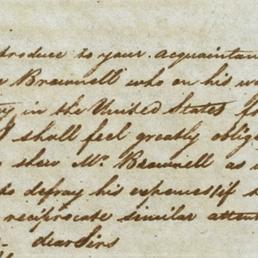 troduce to your acquaintan
Brownell who on his w
in the United States fo
I shall feel greatly oblig
to shew Mr. Brownell as
to defray his expenses (if
reciprocate similar atten
dear Sirs